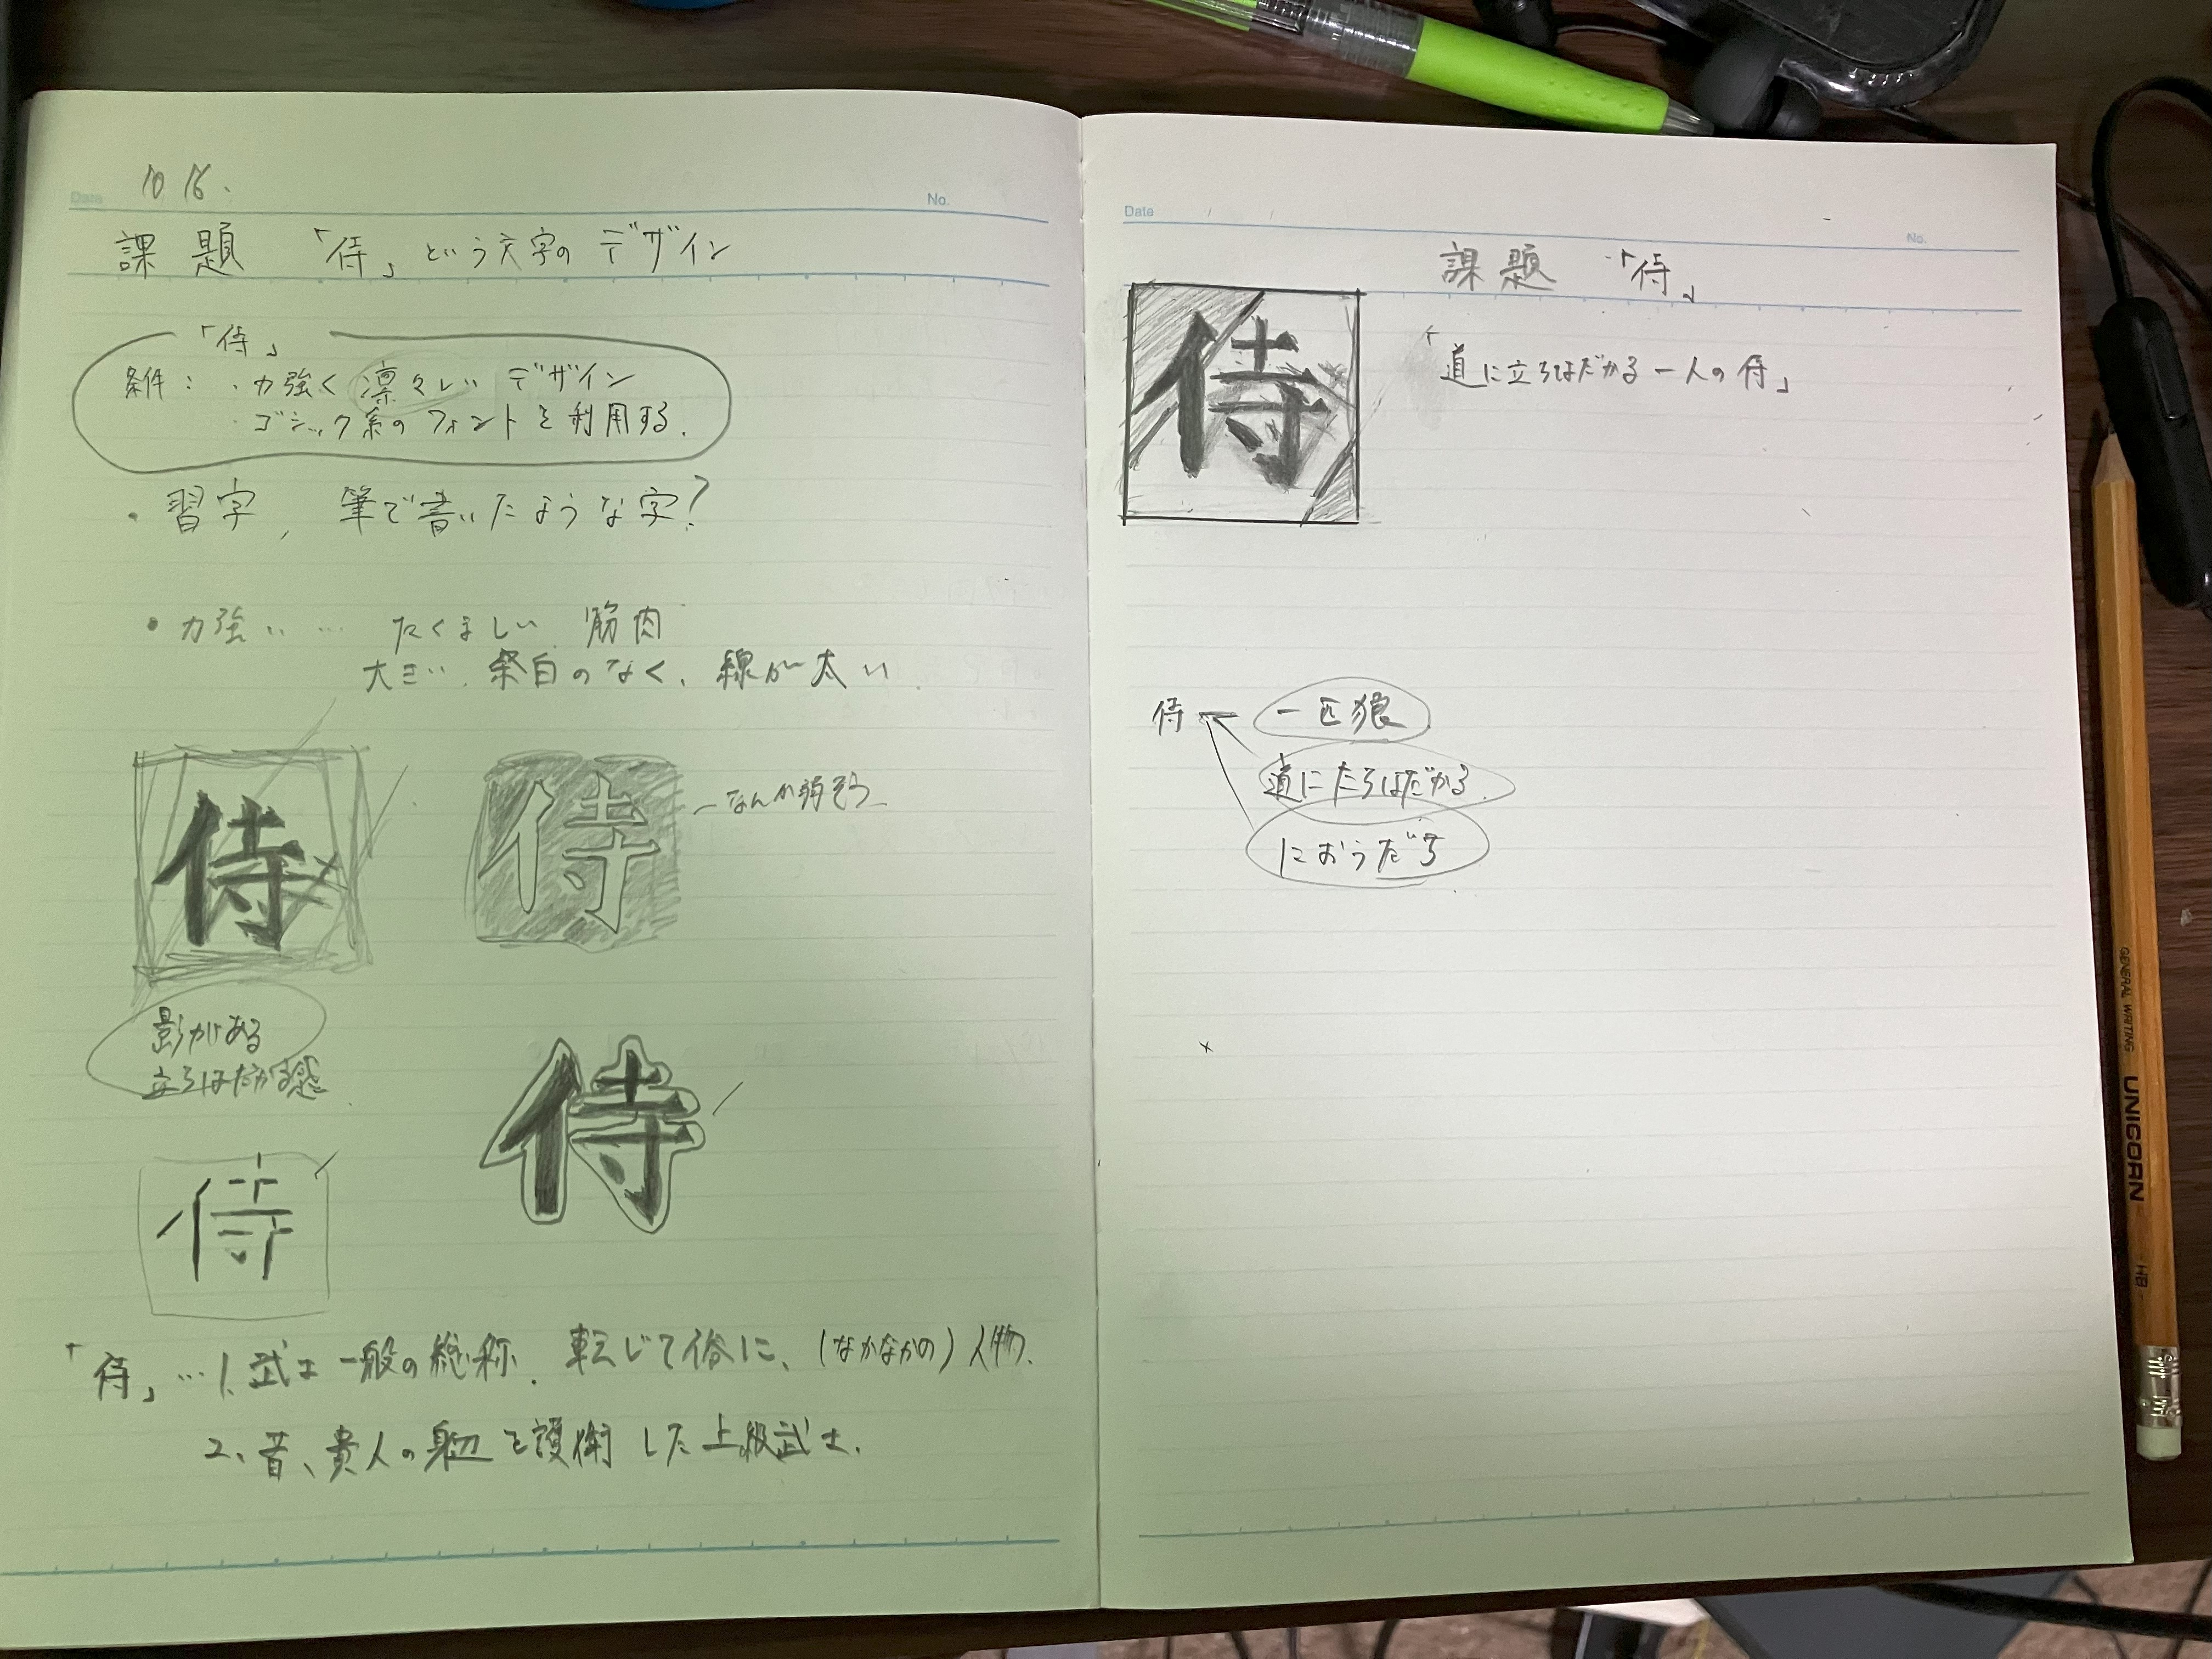 Date 10 16. No.
課題 「侍」という文字のデザイン
「侍」
条件: ・力強く凛々しい デザイン
・ゴシック系のフォントを利用する.
・習字, 筆で書いたような字?
・力強い … たくましい 筋肉
大きい. 余白のなく、線が太い.
侍
侍
なんか弱そう
影がある
立ちはだかる感
侍
侍
「侍」…1. 武士一般の総称. 転じて俗に、(なかなかの)人物.
2、昔、貴人の身辺を護衛した上級武士.
Date No.
課題 「侍」
侍
「道に立ちはだかる一人の侍」
侍 一匹狼
道に立ちはだかる
におうだち
GENERAL WRITING UNICORN HB